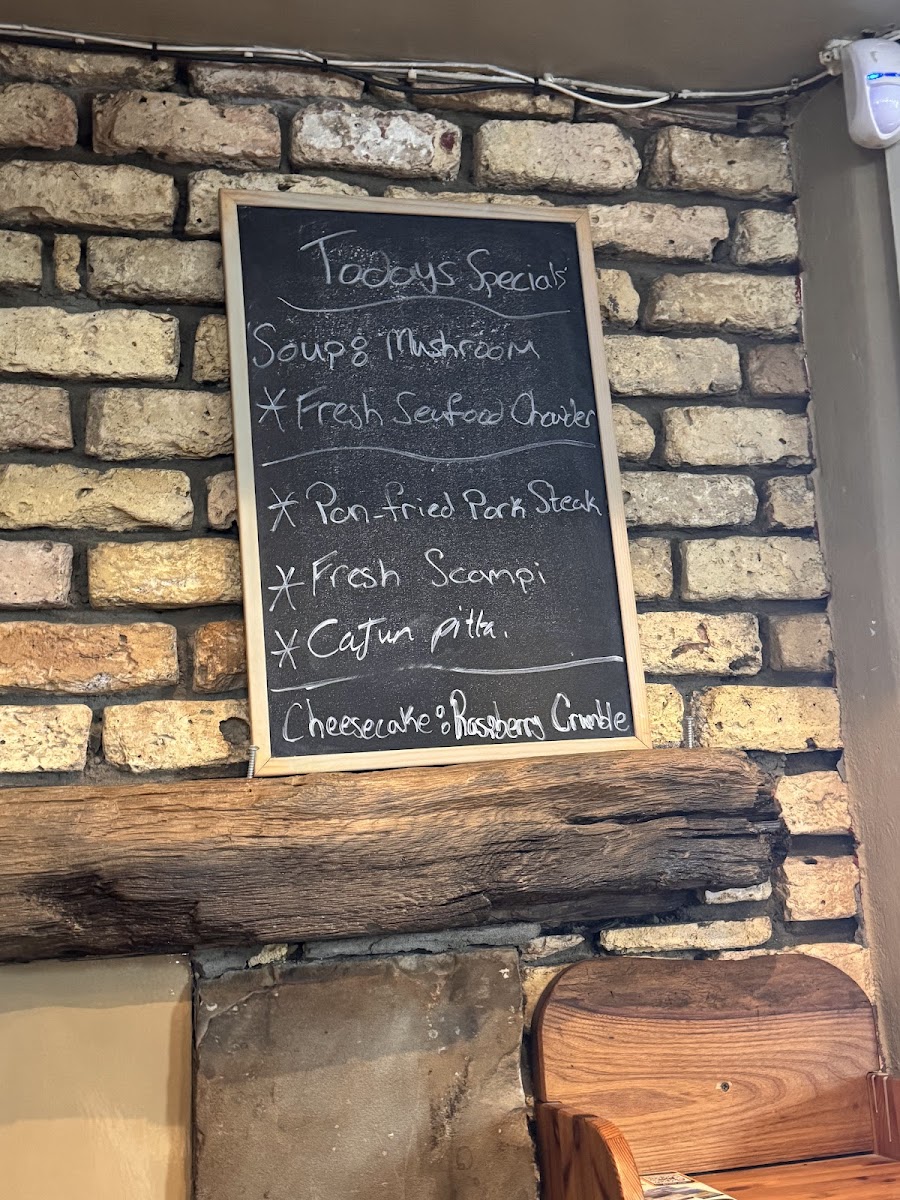 Todays Specials
Soup: Mushroom
* Fresh Seafood Chowder
* Pan-fried Pork Steak
* Fresh Scampi
* Cajun pitta.
Cheesecake: Raspberry Crumble